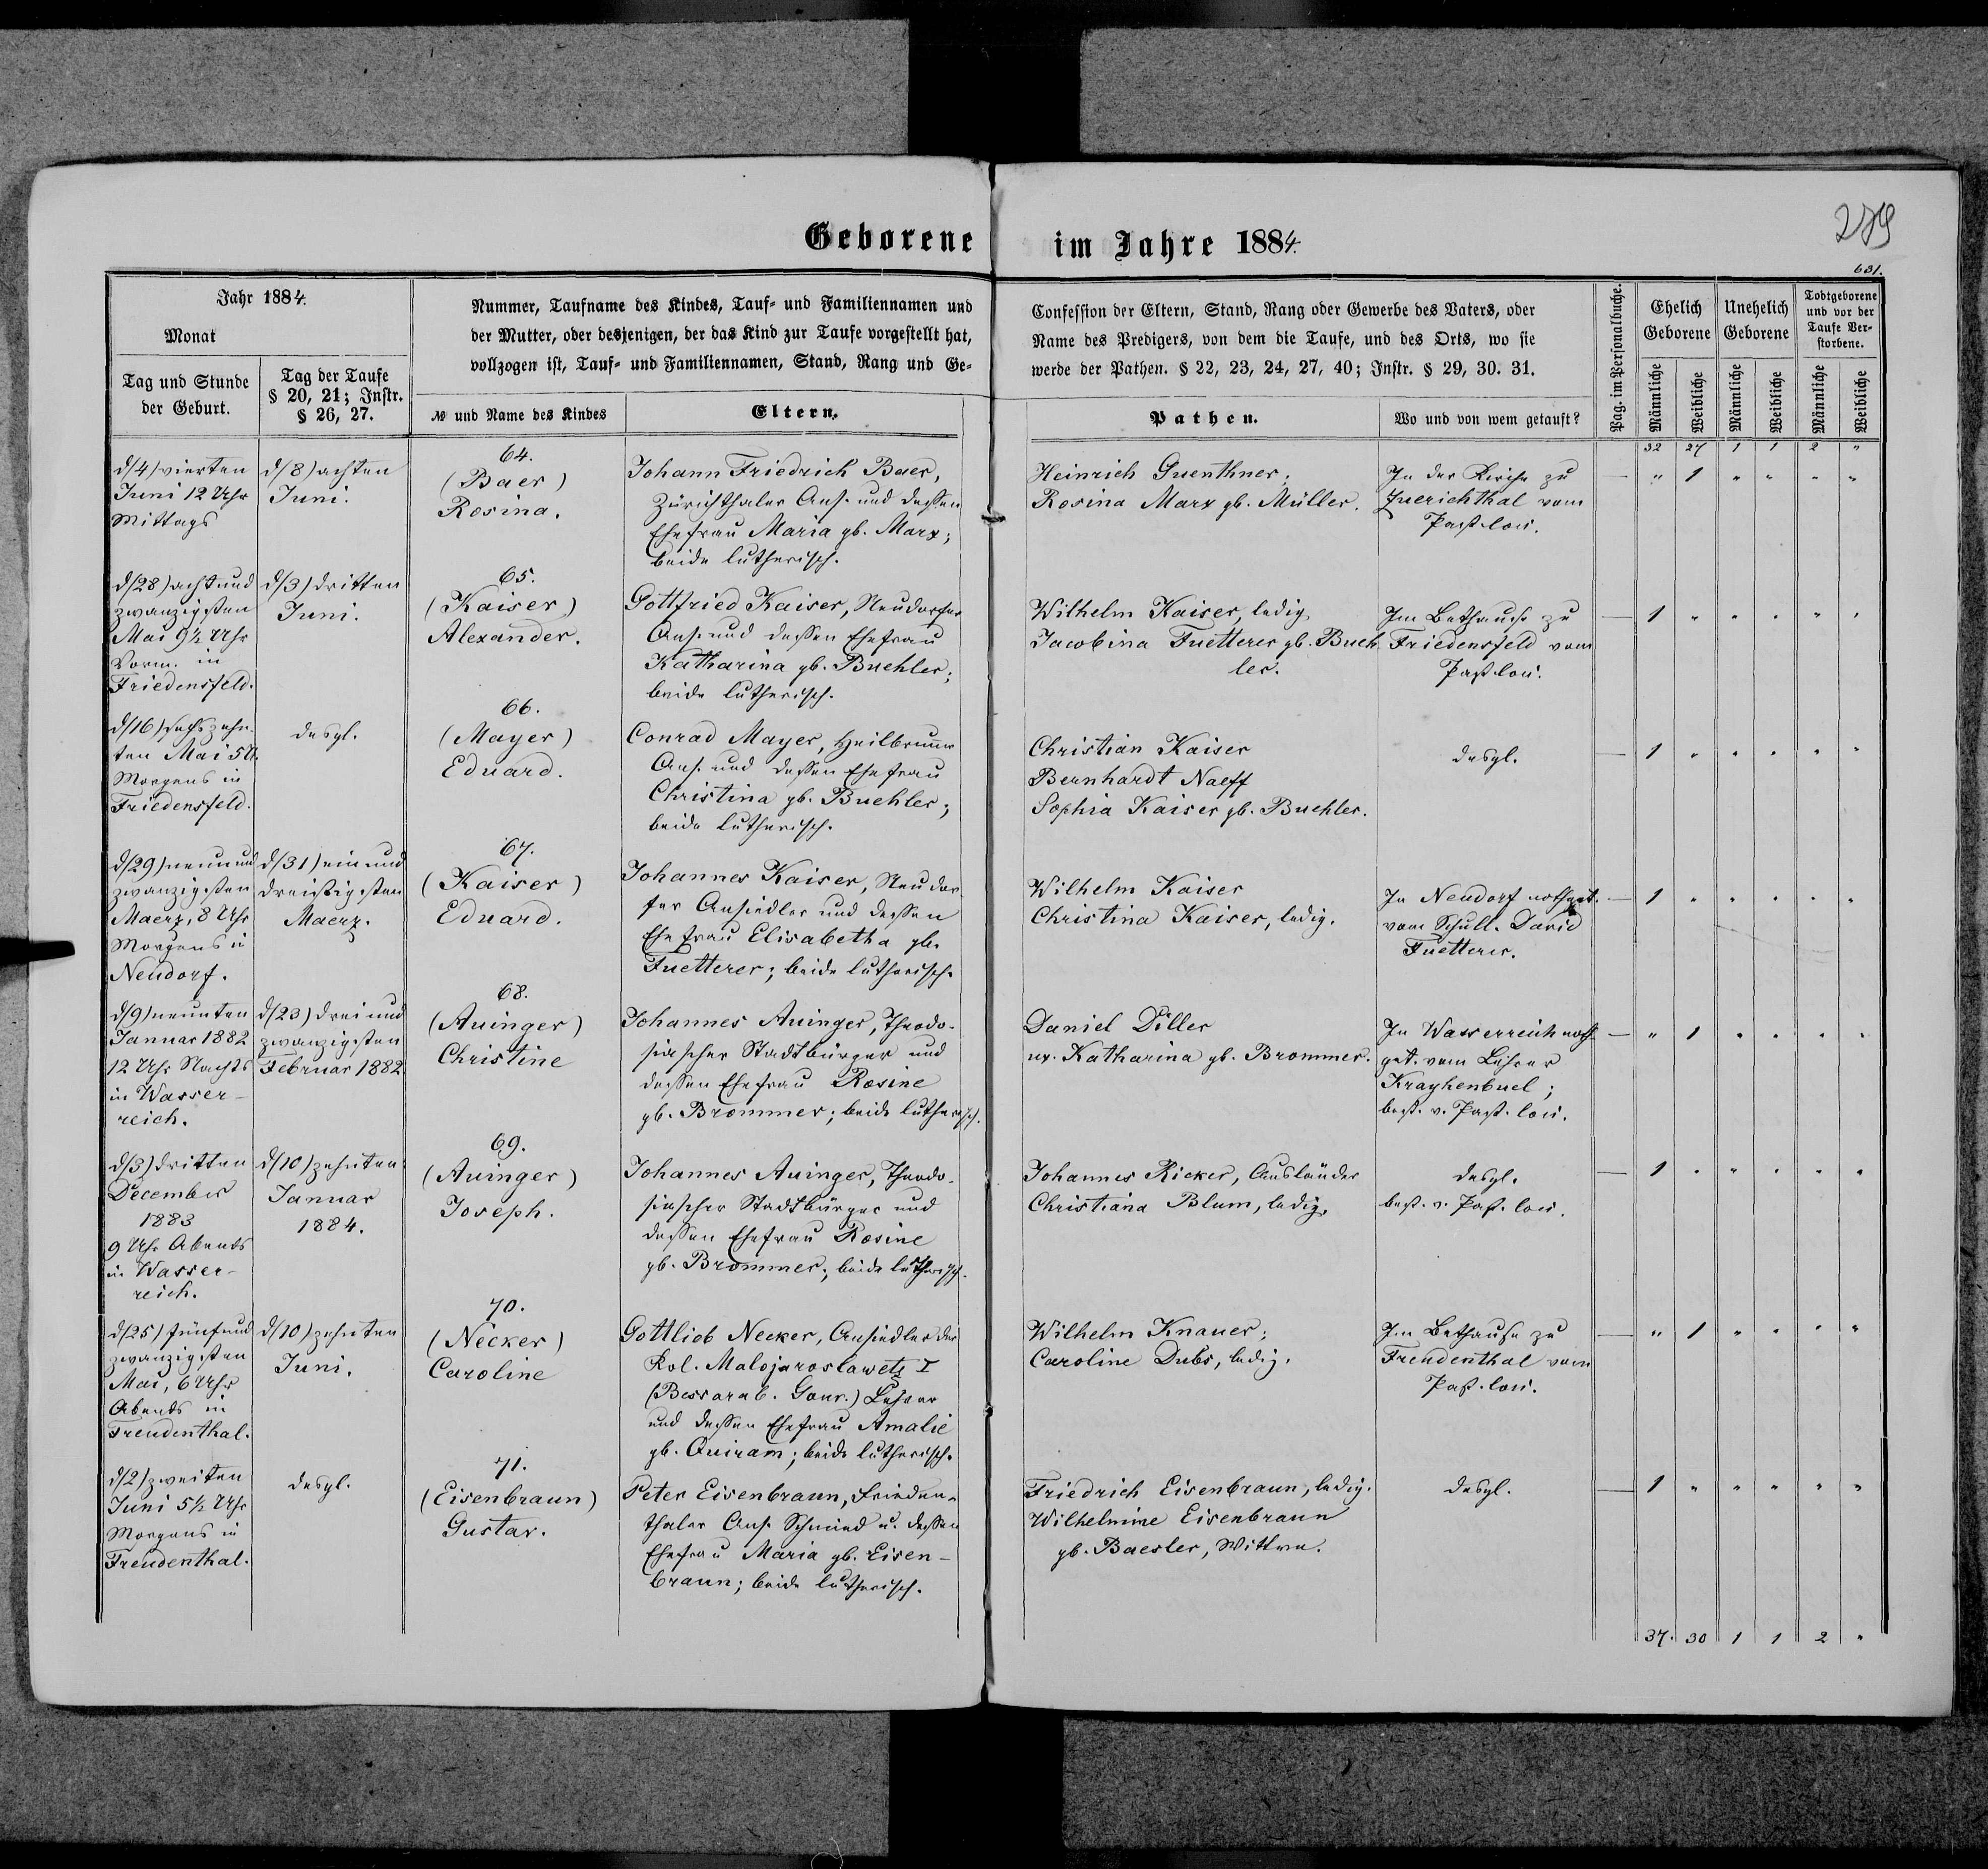 Geborene im Jahre 1884.
289
631.
Jahr 1884.
Monat
Tag und Stunde
der Geburt.
Tag der Taufe
§ 20, 21; Instr.
§ 26, 27.
Nummer, Taufname des Kindes, Tauf- und Familiennamen und
der Mutter, oder desjenigen, der das Kind zur Taufe vorgestellt hat,
vollzogen ist, Tauf- und Familiennamen, Stand, Rang und Ge-
№ und Name des Kindes
Eltern.
Confession der Eltern, Stand, Rang oder Gewerbe des Vaters, oder
Name des Predigers, von dem die Taufe, und des Orts, wo sie
werde der Pathen. § 22, 23, 24, 27, 40; Instr. § 29, 30. 31.
Pathen.
Wo und von wem getauft?
Pag. im Personalbuche.
Ehelich
Geborene
Unehelich
Geborene
Todtgeborene
und vor der
Taufe Ver-
storbene.
Männliche
Weibliche
Männliche
Weibliche
Männliche
Weibliche
32 27 1 1 2 "
d/4) vierten
Juni 12 Uhr
Mittags
d/8) achten
Juni.
64.
(Baer)
Rosina.
Johann Friedrich Baer,
Zürichthaler Ans. und dessen
Ehefrau Maria gb. Marx;
beide lutherisch.
Heinrich Guenthner;
Rosina Marx gb. Müller.
In der Kirche zu
Zuerichthal vom
Past. loci.
" 1 " " " "
d/28) acht und
zwanzigsten
Mai 9½ Uhr
Vorm. in
Friedensfeld.
d/3) dritten
Juni.
65.
(Kaiser)
Alexander.
Gottfried Kaiser, Neudorfer
Ans. und dessen Ehefrau
Katharina gb. Buehler;
beide lutherisch.
Wilhelm Kaiser, ledig
Jacobina Fuetterer gb. Bueh
ler.
Im Bethause zu
Friedensfeld vom
Past. loci.
1 " " " " "
d/16) sechszehn
ten Mai 5 U.
Morgens in
Friedensfeld.
desgl.
66.
(Mayer)
Eduard.
Conrad Mayer, Heilbrunner
Ans. und dessen Ehefrau
Christina gb. Buehler;
beide lutherisch.
Christian Kaiser
Bernhardt Naeff
Sophia Kaiser gb. Buehler.
desgl.
1 " " " " "
d/29) neun und
zwanzigsten
Maerz, 8 Uhr
Morgens in
Neudorf.
d/31) ein und
dreissigsten
Maerz.
67.
(Kaiser)
Eduard.
Johannes Kaiser, Neudor
fer Ansiedler und dessen
Ehefrau Elisabetha gb.
Fuetterer; beide lutherisch.
Wilhelm Kaiser
Christina Kaiser, ledig.
In Neudorf nothget.
vom Schull. David
Fuetterer.
1 " " " " "
d/9) neunten
Januar 1882
12 Uhr Nachts
in Wasser-
reich.
d/23) drei und
zwanzigsten
Februar 1882.
68.
(Auinger)
Christine
Johannes Auinger, Theodo-
siascher Stadtbürger und
dessen Ehefrau Rosine
gb. Brommer; beide lutherisch.
Daniel Diller
ux. Katharina gb. Brommer.
In Wasserreich noth
get. vom Lehrer
Krayhenbuel;
best. v. Past. loci.
" 1 " " " "
d/3) dritten
December
1883
9 Uhr Abends
in Wasser-
reich.
d/10) zehnten
Januar
1884.
69.
(Auinger)
Joseph.
Johannes Auinger, Theodo-
siascher Stadtbürger und
dessen Ehefrau Rosine
gb. Brommer; beide lutherisch.
Johannes Ricker, Ausländer
Christiana Blum, ledig.
desgl.
best. v. Past. loci.
1 " " " " "
d/25) fünf und
zwanzigsten
Mai, 6 Uhr
Abends in
Freudenthal.
d/10) zehnten
Juni.
70.
(Necker)
Caroline
Gottlieb Necker, Ansiedler der
Kol. Malojaroslawetz I
(Bessarab. Gouv.) Lehrer
und dessen Ehefrau Amalie
gb. Quiram; beide lutherisch.
Wilhelm Knauer;
Caroline Dubs, ledig.
Im Bethause zu
Freudenthal vom
Past. loci.
" 1 " " " "
d/2) zweiten
Juni 5½ Uhr
Morgens in
Freudenthal.
desgl.
71.
(Eisenbraun)
Gustav.
Peter Eisenbraun, Frieden-
thaler Ans. Schmied u. dessen
Ehefrau Maria gb. Eisen-
braun; beide lutherisch.
Friedrich Eisenbraun, ledig.
Wilhelmine Eisenbraun
gb. Baesler, Wittwe.
desgl.
1 " " " " "
37. 30 1 1 2 "